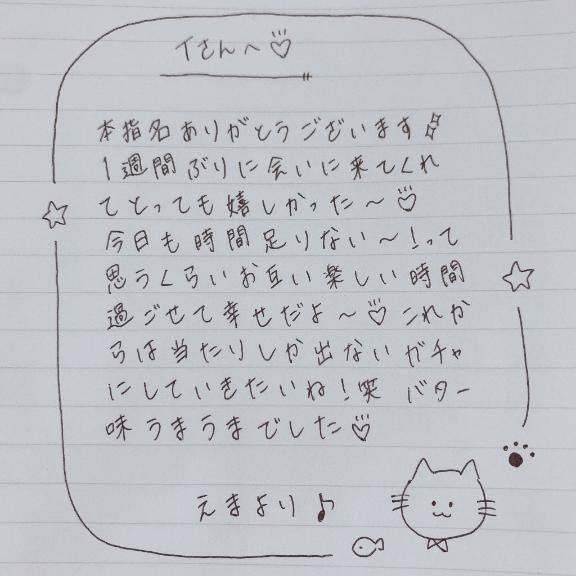 イさんへ♡
本指名ありがとうございます
1週間ぶりに会いに来てくれ
てとっても嬉しかった〜♡
今日も時間足りない〜!って
思うくらいお互い楽しい時間
過ごせて幸せだよ〜♡これか
らは当たりしか出ないガチャ
にしていきたいね!笑 バター
味うまうまでした♡
えまより♪